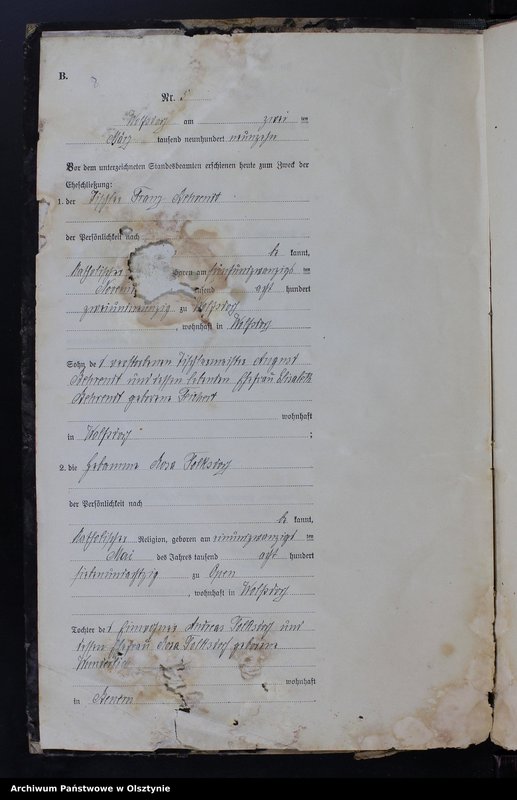 B.
Nr. 5
Wolfsdorf am zwei ten
März tausend neunhundert neunzehn
Vor dem unterzeichneten Standesbeamten erschienen heute zum Zweck der
Eheschließung:
1. der Tischler Franz Behrendt
der Persönlichkeit nach
be kannt,
katholischer boren am fünfundzwanzigs ten
Novem usend acht hundert
zweiundneunzig zu Wolfsdorf
, wohnhaft in Wolfsdorf
Sohn des verstorbenen Tischlermeisters August
Behrendt und dessen lebenden Ehefrau Elisabeth
Behrendt geborene
wohnhaft
in Wolfsdorf ;
2. die Hebamme Rosa Polksdorf
der Persönlichkeit nach
be kannt,
katholischer Religion, geboren am einundzwanzigs ten
Mai des Jahres tausend acht hundert
siebenundachtzig zu Open
, wohnhaft in Wolfsdorf
Tochter des Einwohners Andreas Polksdorf und
dessen Ehefrau Rosa Polksdorf geborene
wohnhaft
in
Archiwum Państwowe w Olsztynie